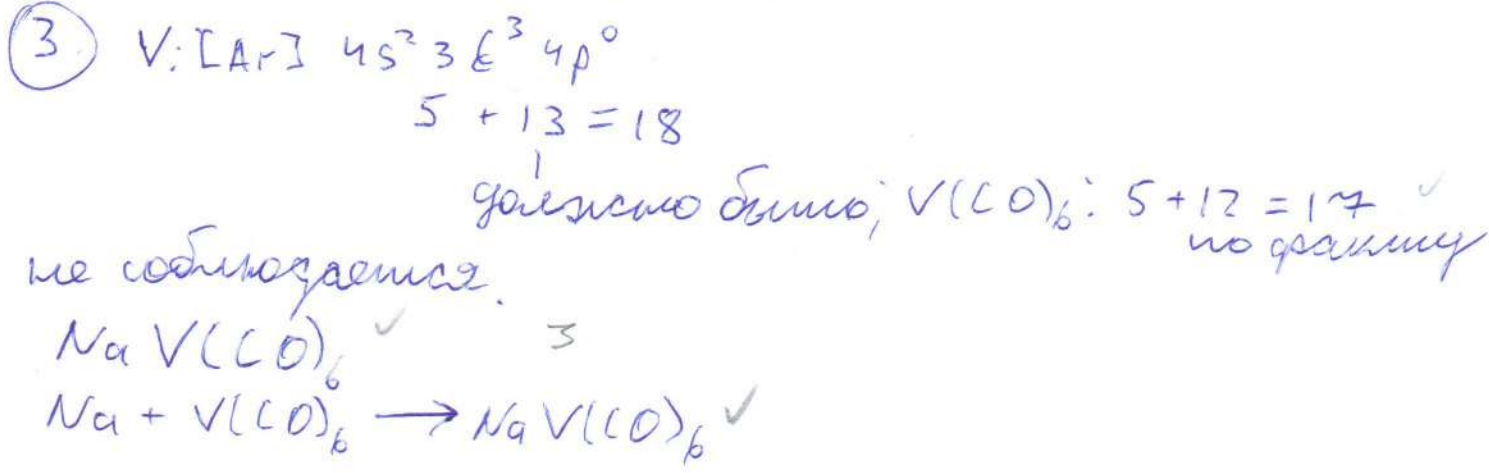 ③ V: [Ar] 4s² 3d³ 4p⁰
5 + 13 = 18
должно было; V(CO)₆: 5+12 = 17 ✓
по факту
не соблюдается.
Na V(CO)₆ ✓ 3
Na + V(CO)₆ → Na V(CO)₆ ✓